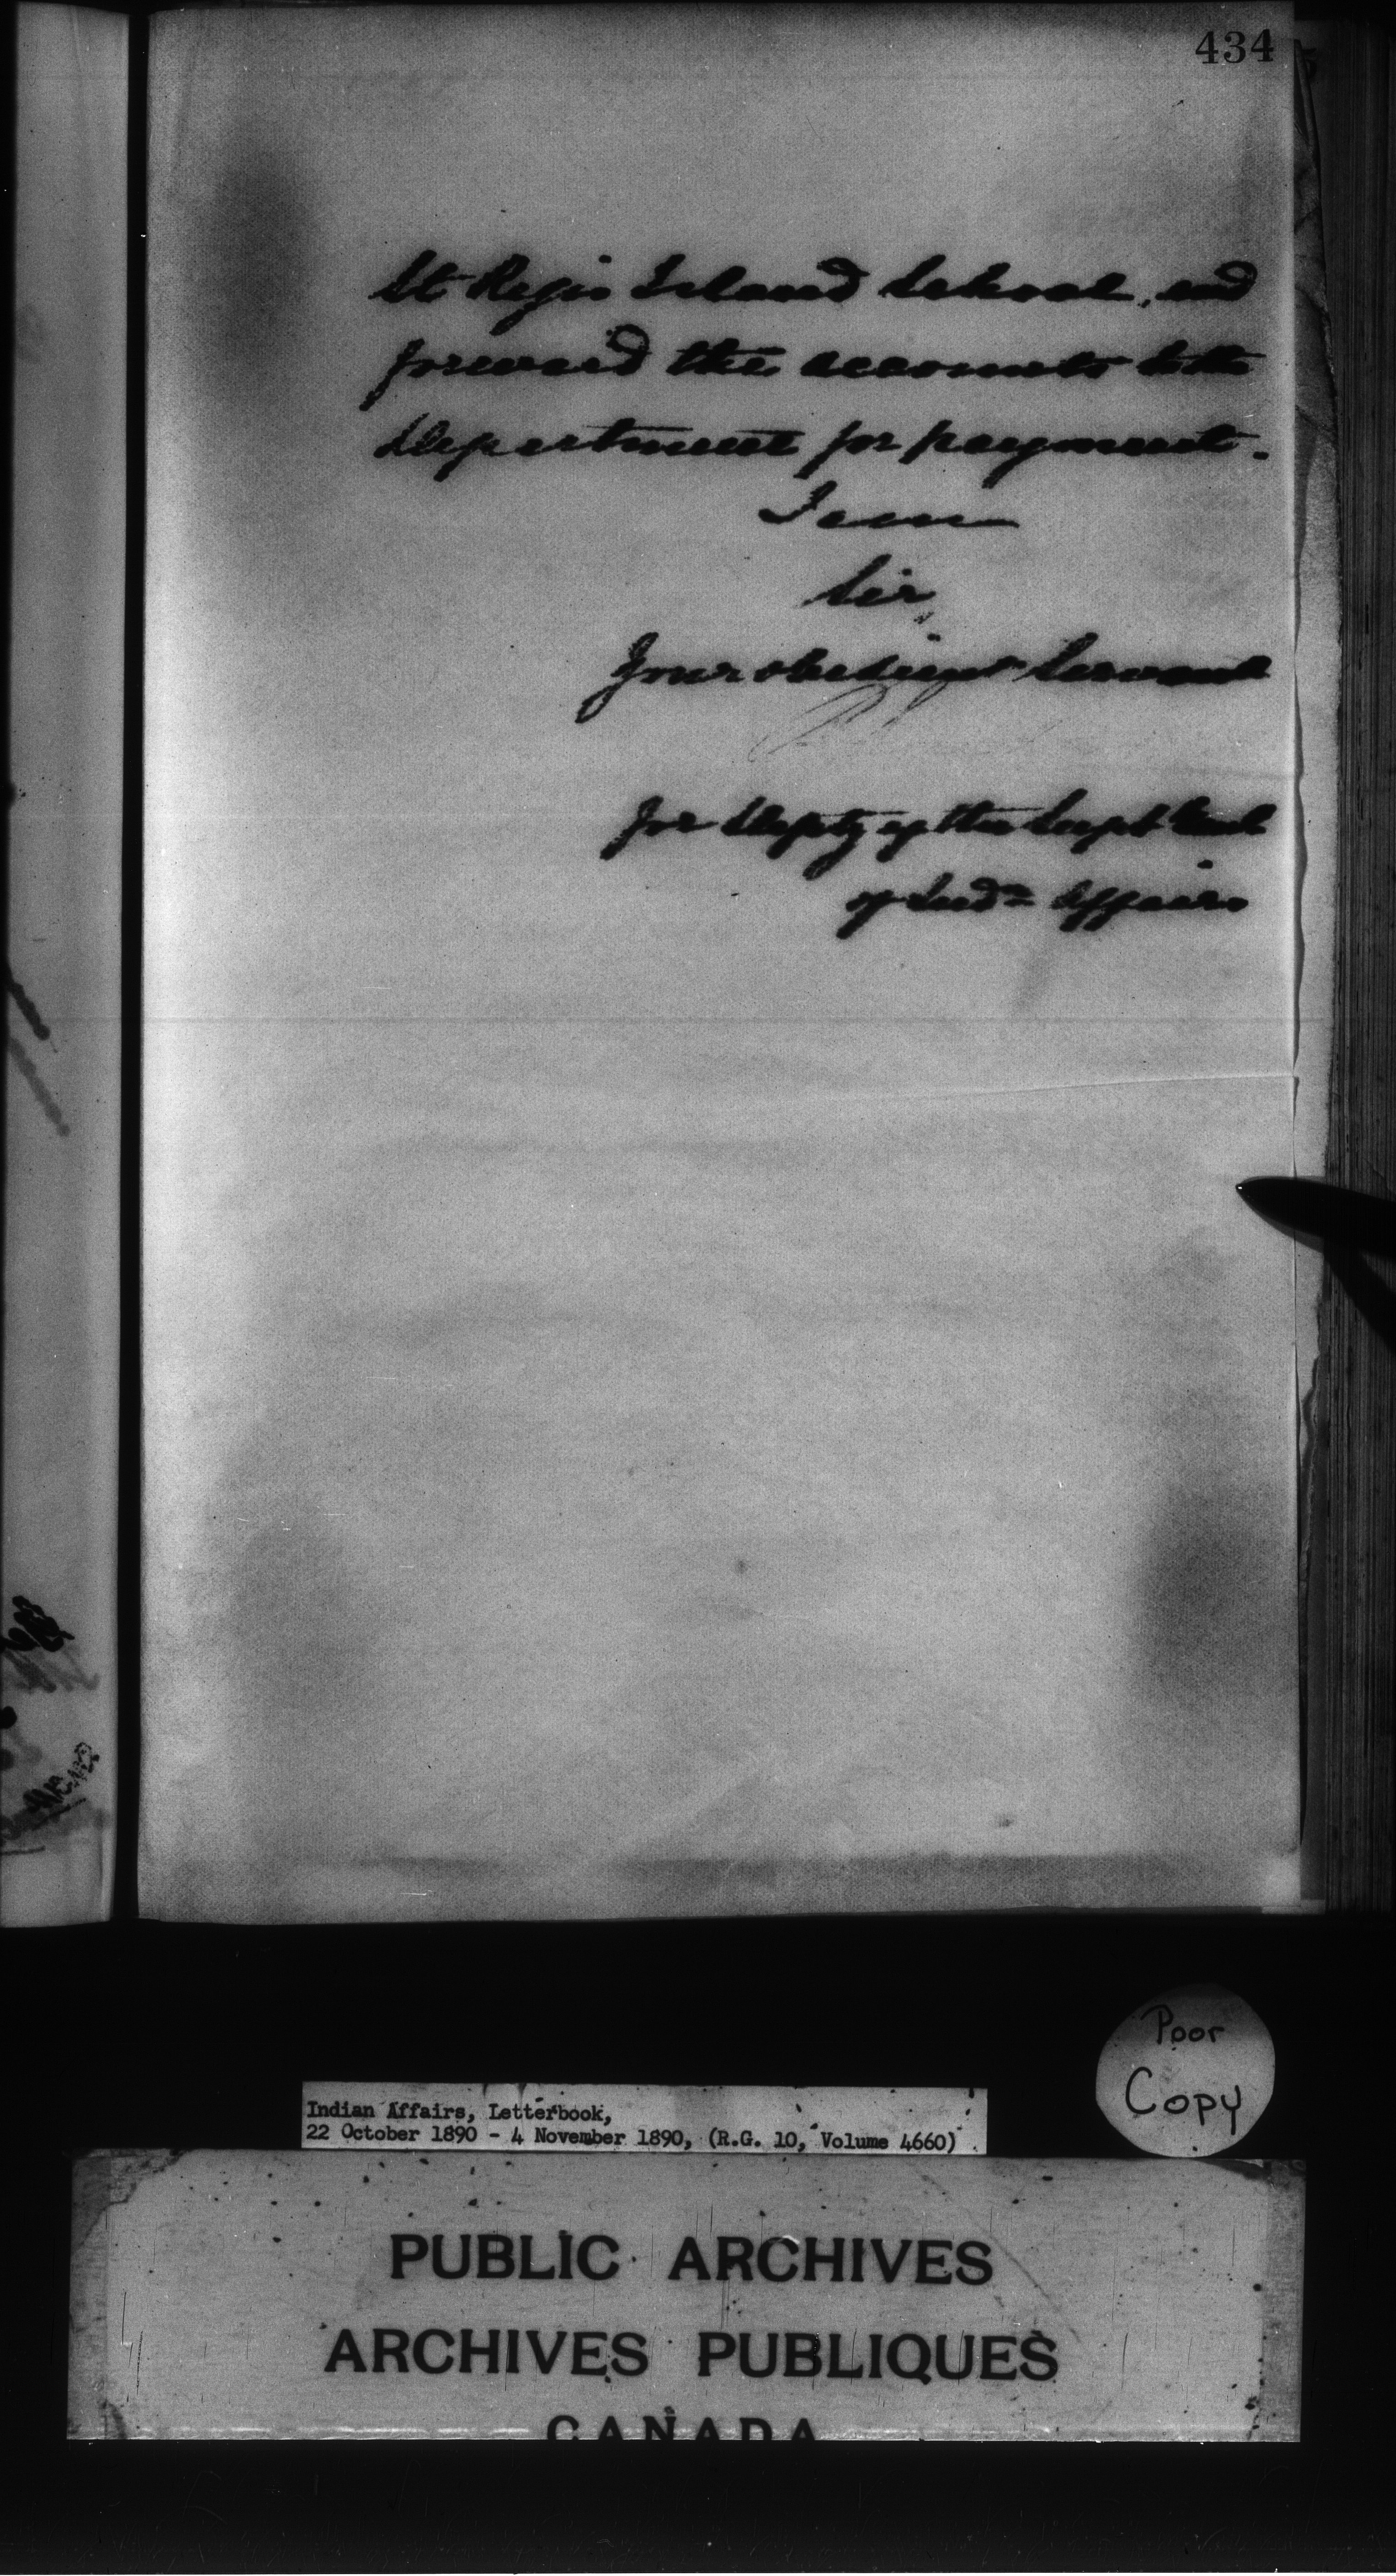 434
St Regis Island School, and
forward the accounts to the
Department for payment.
I am
Sir,
Your obedient Servant
for Depty of the Supt Genl
of Indn Affairs
Poor
Copy
Indian Affairs, Letterbook,
22 October 1890 - 4 November 1890, (R.G. 10, Volume 4660)
PUBLIC ARCHIVES
ARCHIVES PUBLIQUES
CANADA